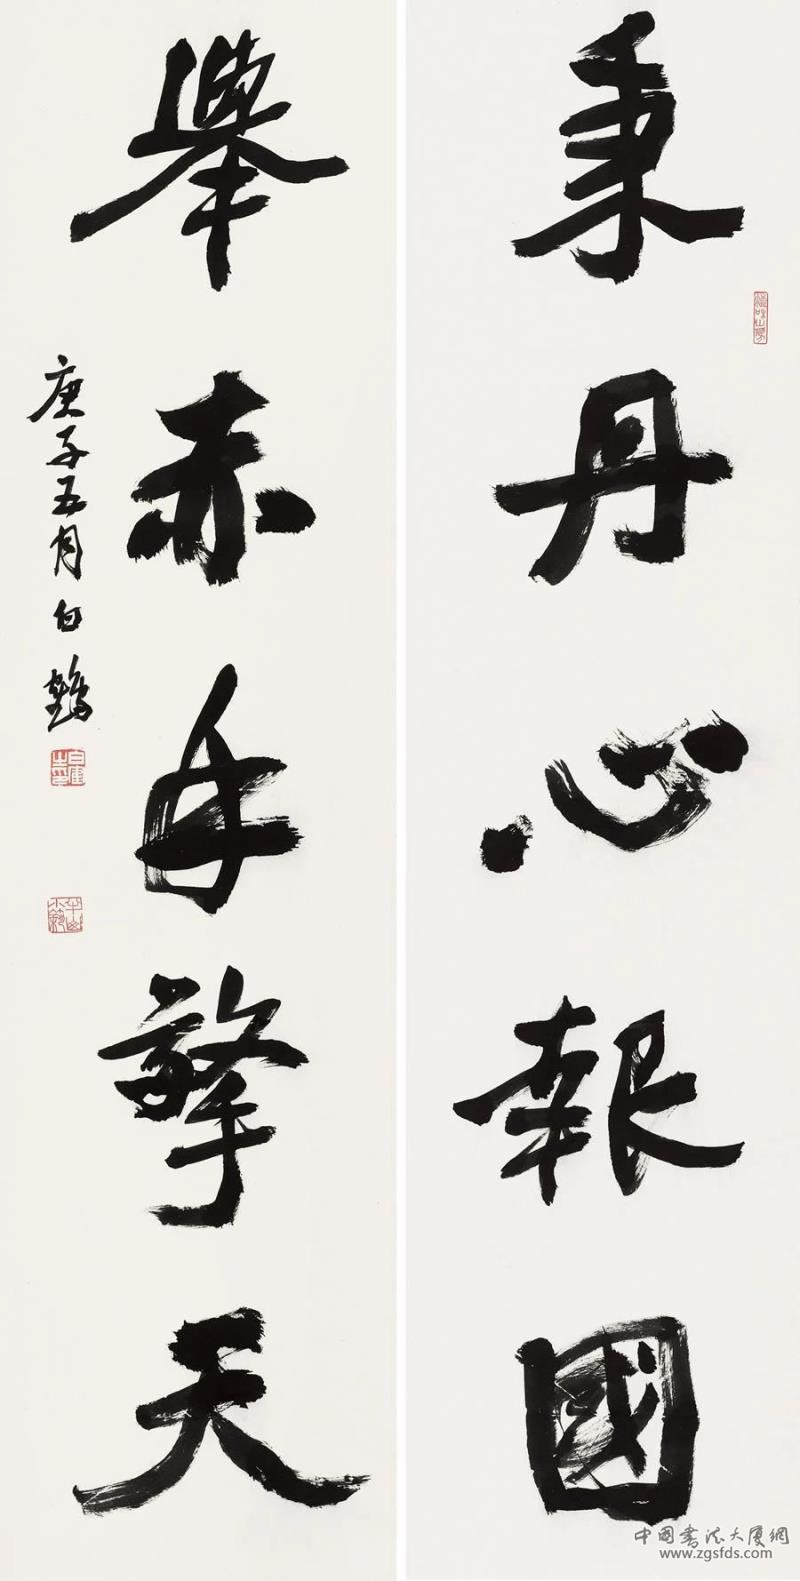 秉丹心報國
舉赤手擎天
庚子五月白鶴
中國書法大厦網
www.zgsfds.com